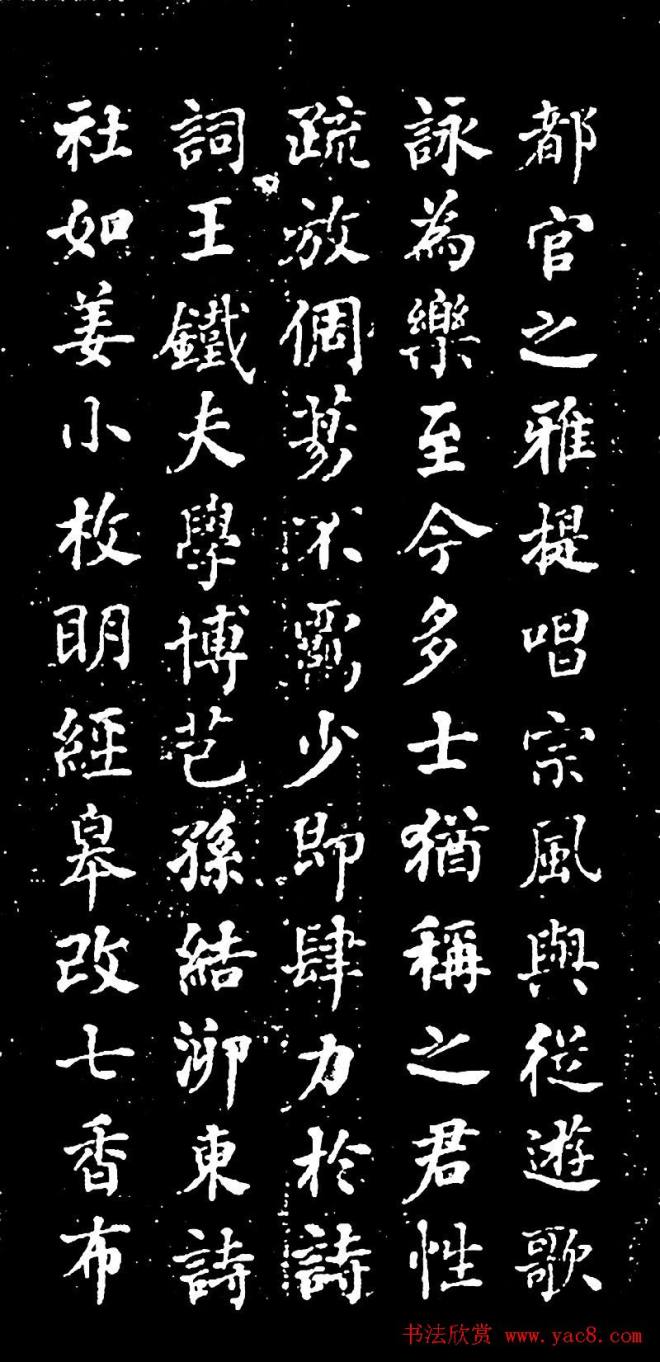 都官之雅提唱宗風與從遊歌
詠為樂至今多士猶稱之君性
疏放倜蕩不羈少即肆力於詩
詞王鐵夫學博芑孫結泖東詩
社如姜小枚明經皋改七香布
书法欣赏 www.yac8.com